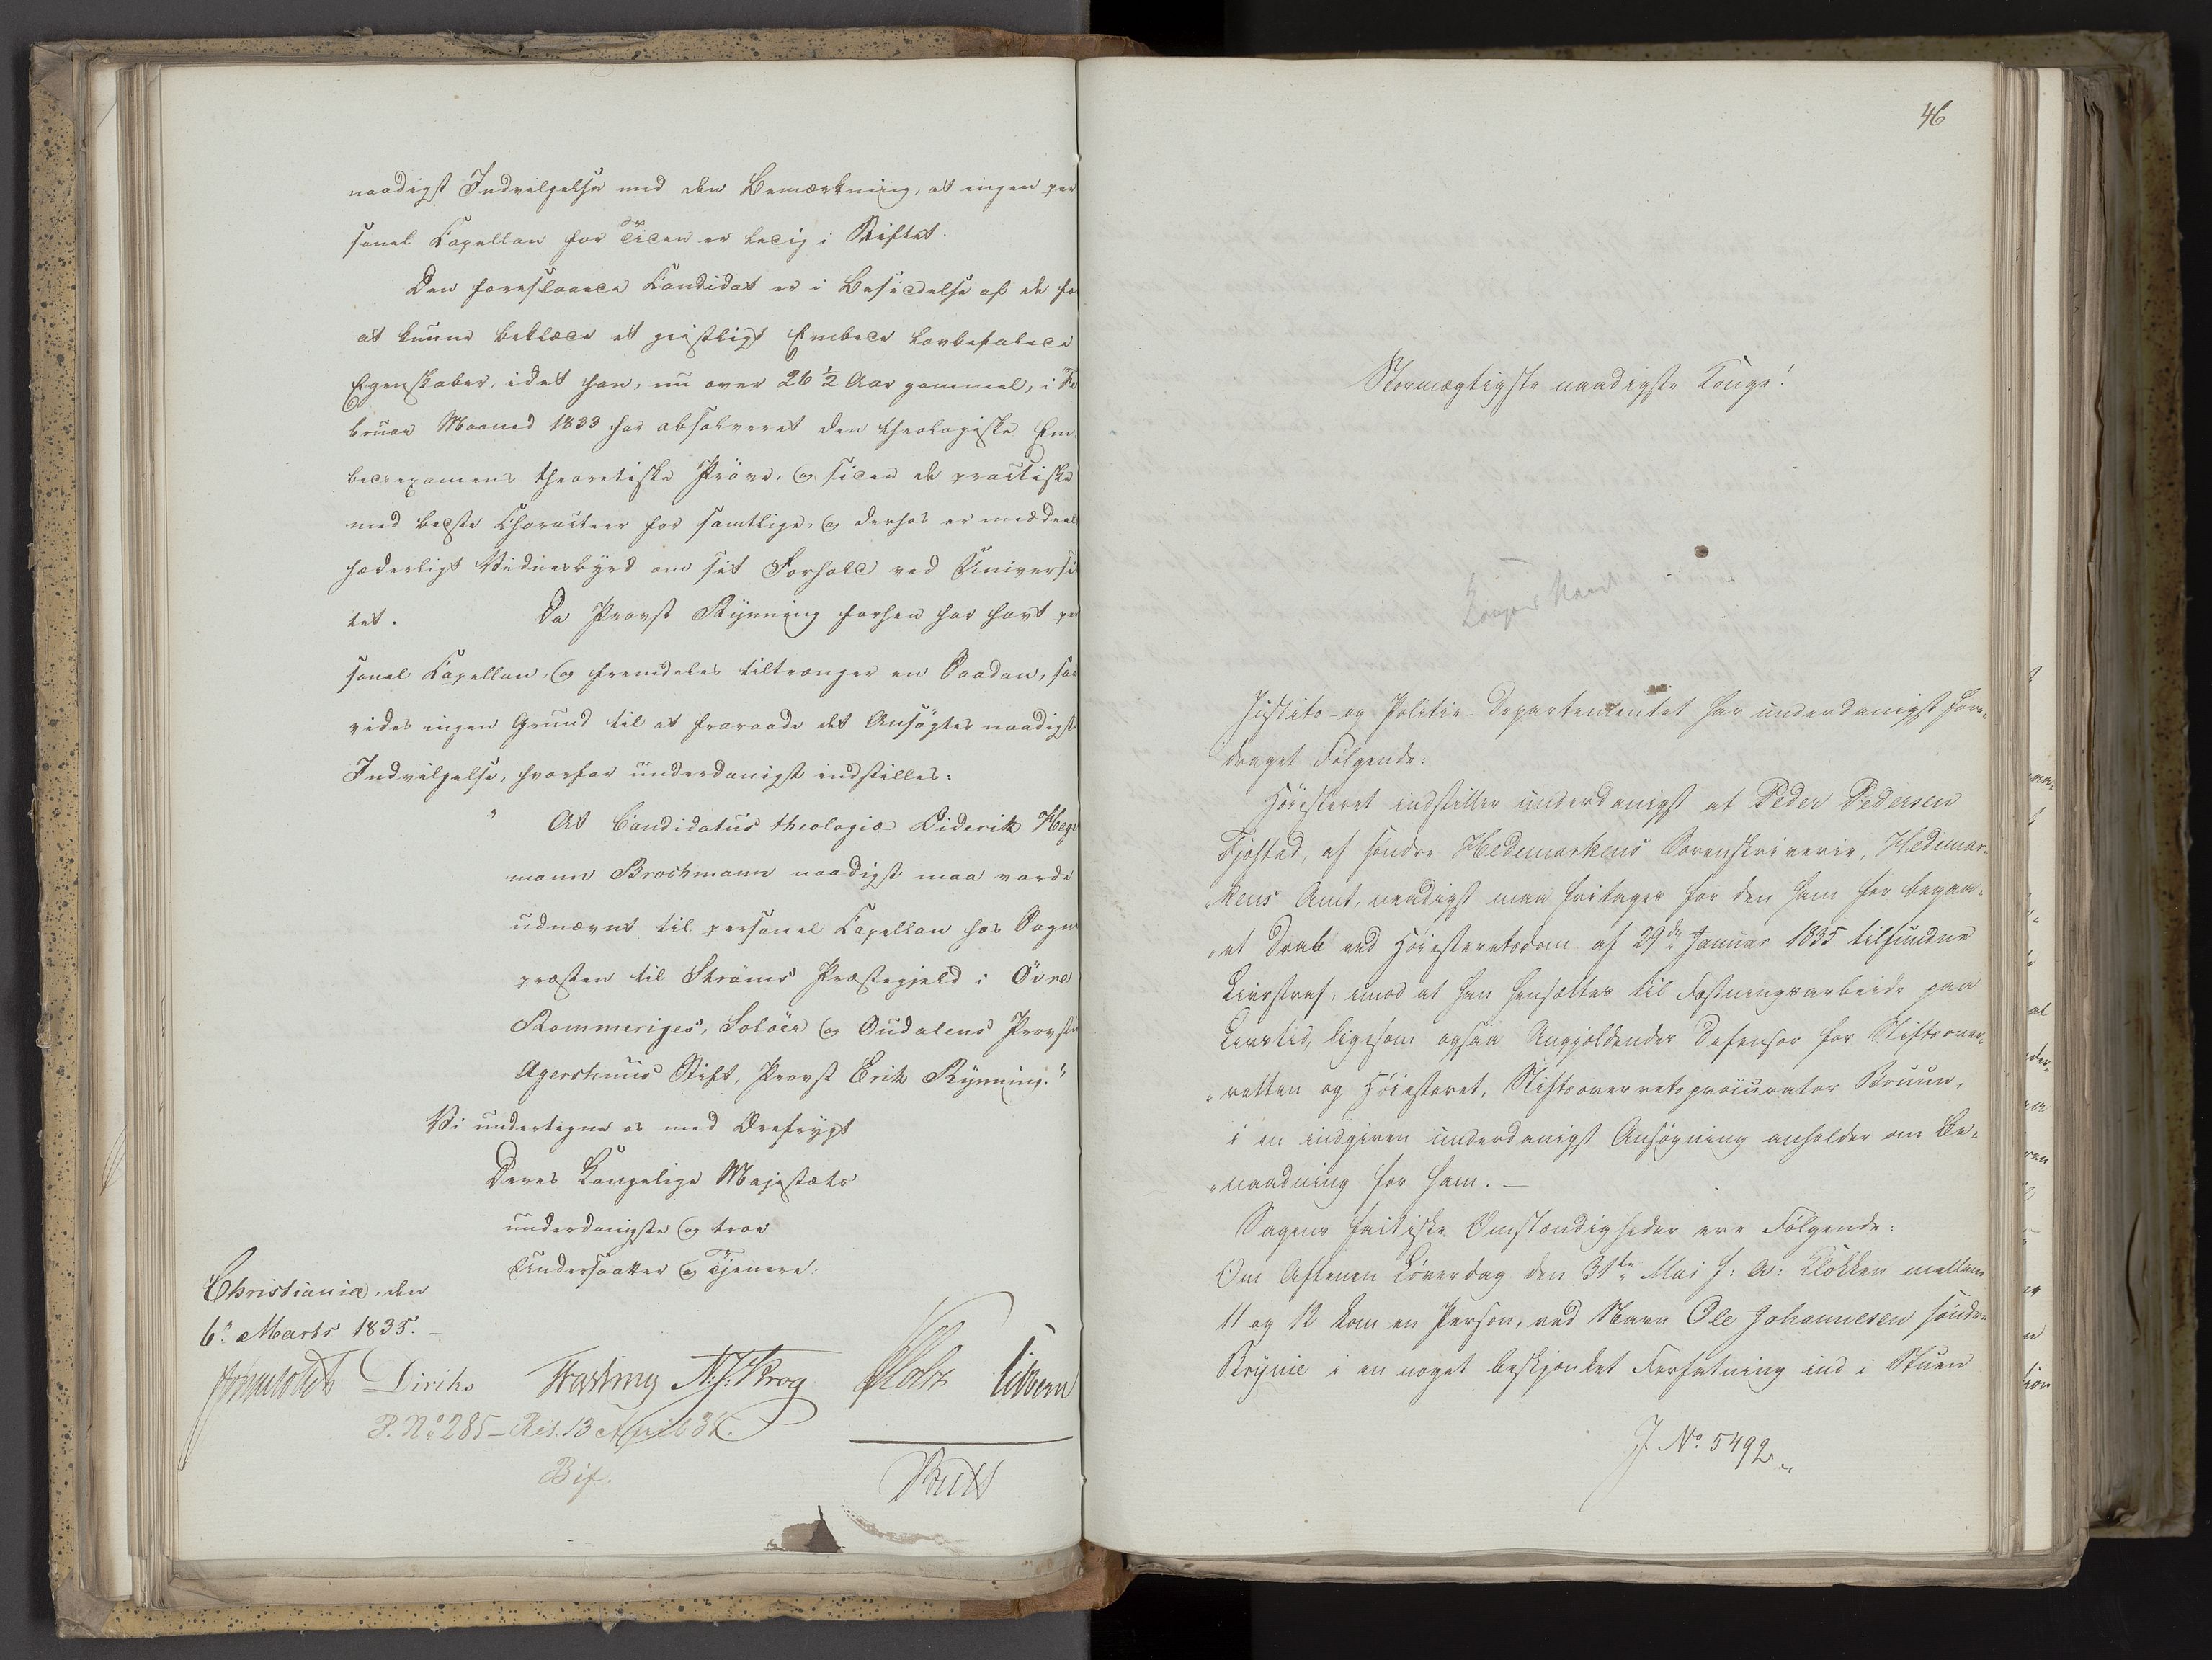 naadigst Indvilgelse med den Bemærkning, at ingen per
sonel Capellan for Tiden er ledig i Stiftet.
Den foreslaaede Candidat er i Besiddelse af de for
at kunne beklæde et geistligt Embede lovbefalede
Egenskaber, idet han, nu over 26 1/2 Aar gammel, i Fe
bruar Maaned 1833 har absolveret den theologiske Em
bedsexamens theoretiske Prøve, og siden de practiske
med bedste Characteer for samtlige, og derhos er meddeelt
hæderligt Vidnesbyrd om sit Forhold ved Universi
tet. Da Provst Rynning forhen har havt per
sonel Capellan, og fremdeles tiltrænger en Saadan, saa
vides ingen Grund til at fraraade det Ansøgtes naadigste
Indvilgelse, hvorfor underdanigst indstilles:
" At Candidatus theologiæ Diderik Hege
mann Brochmann naadigst maa vorde
udnævnt til personel Capellan hos Sogne
præsten til Strøms Præstegjeld i Øvre
Rommeriges, Soløer og Oudalens Provstie
Agershuus Stift, Provst Erik Rynning."
Vi undertegne os med Ærefrygt
Deres Kongelige Majestæts
underdanigste og troe
Undersaatter og Tjenere.
Christiania, den
6te Marts 1835.
Diriks Fasting N. J. Krog Holst
P. No 285 - Res. 13 April 35.
Bif.
46
Stormægtigste naadigste Konge!
Justits- og Politie-Departementet har underdanigst fore-
draget Følgende:
Høiesteret indstiller underdanigst at Peder Pedersen
Fjøstad, af søndre Hedemarkens Sorenskriverie, Hedemar-
kens Amt, naadigst maa fritages for den ham for begaa-
et Drab ved Høiesteretsdom af 29de Januar 1835 tilfundne
Livsstraf, imod at han hensættes til Fæstningsarbeide paa
Livstid, ligesom ogsaa Angjældendes Defensor for Stiftsover-
retten og Høiesteret, Stiftsoverretsprocurator Bruun,
i en indgiven underdanigst Ansøgning anholder om Be-
naadning for ham. –
Sagens factiske Omstændigheder ere Følgende:
Om Aftenen Løverdag den 31te Mai f: A: Klokken mellem
11 og 12 kom en Person, ved Navn Ole Johannesen søndre
Brynie i en noget beskjænket Forfatning ind i Stuen
J. No. 5492